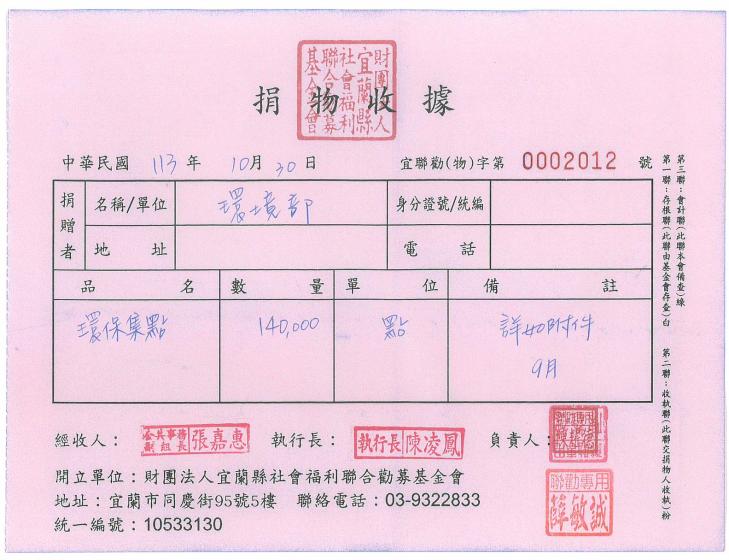 財團法人
宜蘭縣
社會福利
聯合勸募
基金會
捐物收據
中華民國 113 年 10月 30日 宜聯勸(物)字第 0002012 號
捐贈者 名稱/單位 環境部 身分證號/統編
地址 電話
品名 數量 單位 備註
環保集點 140,000 點 詳如附件
9月
經收人： 公共事務副組長 張嘉惠 執行長： 執行長 陳凌鳳 負責人：
聯勸專用
薛敏誠
開立單位：財團法人宜蘭縣社會福利聯合勸募基金會
地址：宜蘭市同慶街95號5樓 聯絡電話：03-9322833
統一編號：10533130
第一聯：存根聯(此聯由基金會存查)白 第二聯：收執聯(此聯交捐物人收執)粉
第三聯：會計聯(此聯本會備查)綠